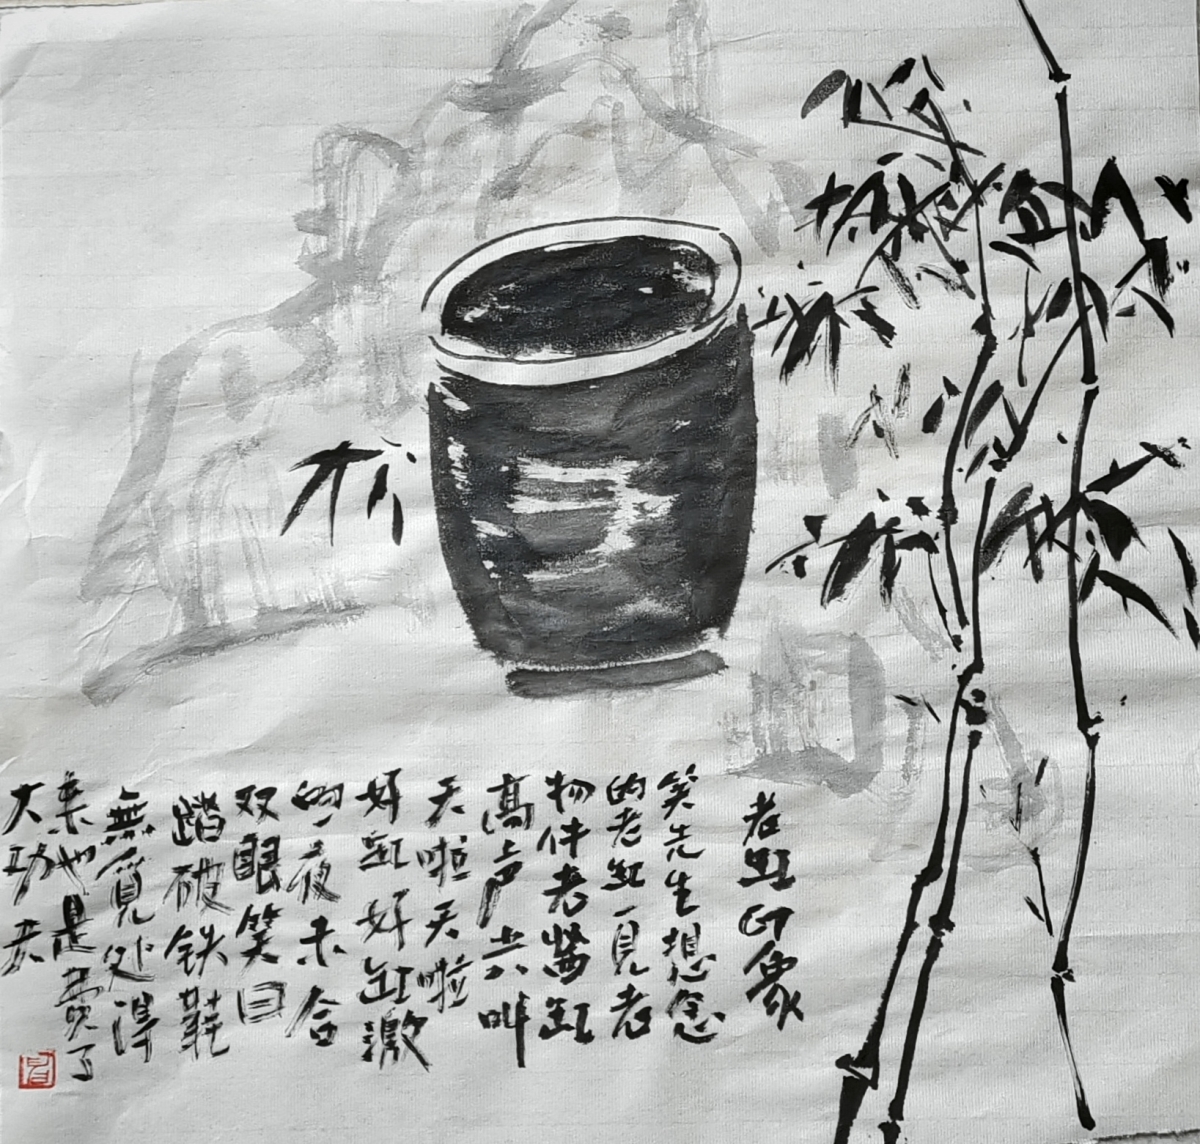 老缸印象
笑先生想念
的老缸一見老
物件老酱缸
高声大叫
天啦天啦
好缸好缸激
的一夜未合
双眼笑曰
踏破铁鞋
無覓处得
来也是费了
大功夫